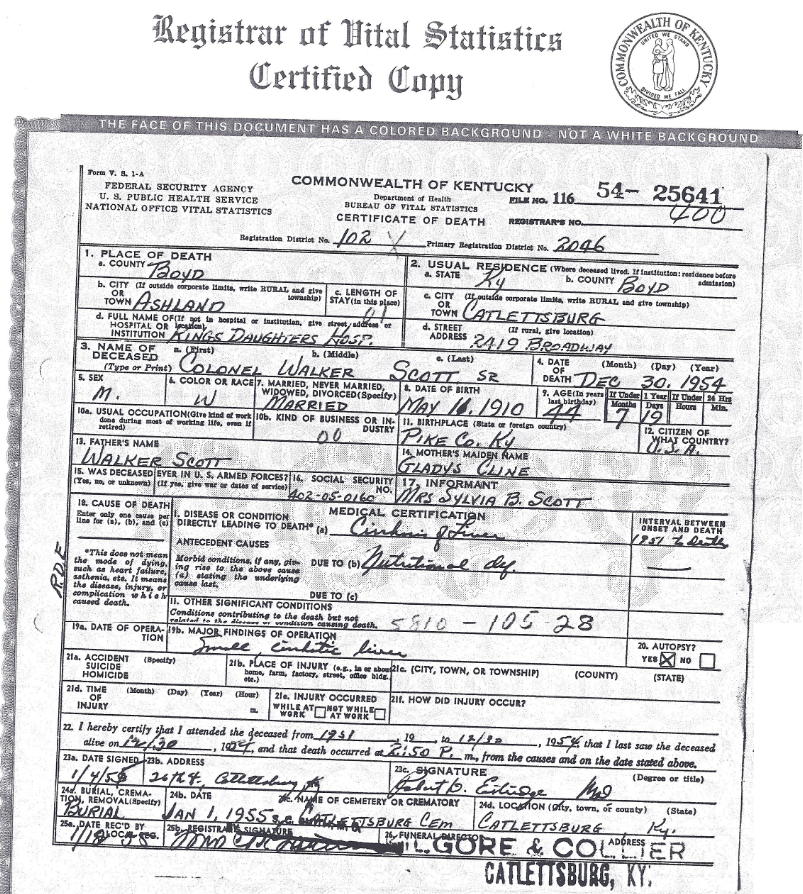 Registrar of Vital Statistics
Certified Copy
COMMONWEALTH OF KENTUCKY
UNITED WE STAND
DIVIDED WE FALL
THE FACE OF THIS DOCUMENT HAS A COLORED BACKGROUND - NOT A WHITE BACKGROUND
Form V. S. 1-A
FEDERAL SECURITY AGENCY
U. S. PUBLIC HEALTH SERVICE
NATIONAL OFFICE VITAL STATISTICS
COMMONWEALTH OF KENTUCKY
Department of Health
BUREAU OF VITAL STATISTICS
CERTIFICATE OF DEATH
FILE NO. 116 54- 25641
REGISTRAR'S NO. 400
Registration District No. 102 Primary Registration District No. 2046
1. PLACE OF DEATH
a. COUNTY BOYD
2. USUAL RESIDENCE (Where deceased lived. If institution: residence before admission)
a. STATE Ky b. COUNTY BOYD
b. CITY (If outside corporate limits, write RURAL and give township)
OR TOWN ASHLAND
c. LENGTH OF STAY (in this place)
c. CITY (If outside corporate limits, write RURAL and give township)
OR TOWN CATLETTSBURG
d. FULL NAME OF (If not in hospital or institution, give street address or location)
HOSPITAL OR INSTITUTION KINGS DAUGHTERS HOSP.
d. STREET ADDRESS (If rural, give location)
2419 BROADWAY
3. NAME OF DECEASED (Type or Print)
a. (First) b. (Middle) c. (Last)
COLONEL WALKER SCOTT SR
4. DATE OF DEATH (Month) (Day) (Year)
DEC 30. 1954
5. SEX
M.
6. COLOR OR RACE
W
7. MARRIED, NEVER MARRIED, WIDOWED, DIVORCED (Specify)
MARRIED
8. DATE OF BIRTH
MAY 1910
9. AGE (In years last birthday)
44
If Under 1 Year If Under 24 Hrs
Months Days Hours Min.
7 19
10a. USUAL OCCUPATION (Give kind of work done during most of working life, even if retired)
10b. KIND OF BUSINESS OR INDUSTRY
00
11. BIRTHPLACE (State or foreign country)
PIKE CO. KY
12. CITIZEN OF WHAT COUNTRY?
U.S.A.
13. FATHER'S NAME
WALKER SCOTT
14. MOTHER'S MAIDEN NAME
GLADYS CLINE
15. WAS DECEASED EVER IN U. S. ARMED FORCES?
(Yes, no, or unknown) (If yes, give war or dates of service)
16. SOCIAL SECURITY NO.
402-05-0160
17. INFORMANT
MRS SYLVIA B. SCOTT
18. CAUSE OF DEATH
Enter only one cause per line for (a), (b), and (c)
*This does not mean the mode of dying, such as heart failure, asthenia, etc. It means the disease, injury, or complication which caused death.
R.D.E
MEDICAL CERTIFICATION
I. DISEASE OR CONDITION DIRECTLY LEADING TO DEATH* (a) Cirrhosis of Liver
INTERVAL BETWEEN ONSET AND DEATH
1951 to death
ANTECEDENT CAUSES
Morbid conditions, if any, giving rise to the above cause (a) stating the underlying cause last.
DUE TO (b) Nutritional def
DUE TO (c)
11. OTHER SIGNIFICANT CONDITIONS
Conditions contributing to the death but not related to the disease or condition causing death.
5810 - 105 - 28
19a. DATE OF OPERATION
19b. MAJOR FINDINGS OF OPERATION
Small, cirrhotic liver
20. AUTOPSY?
YES NO
21a. ACCIDENT SUICIDE HOMICIDE (Specify)
21b. PLACE OF INJURY (e.g., in or about home, farm, factory, street, office bldg. etc.)
21c. (CITY, TOWN, OR TOWNSHIP) (COUNTY) (STATE)
21d. TIME OF INJURY (Month) (Day) (Year) (Hour) m.
21e. INJURY OCCURRED
WHILE AT WORK NOT WHILE AT WORK
21f. HOW DID INJURY OCCUR?
22. I hereby certify that I attended the deceased from 1951, 19 to 12/30, 1954, that I last saw the deceased
alive on 12/30, 1954, and that death occurred at :50 P. m., from the causes and on the date stated above.
23a. DATE SIGNED
23b. ADDRESS
Catlettsburg Ky
23c. SIGNATURE (Degree or title)
Robert D. MD
24a. BURIAL, CREMATION, REMOVAL (Specify)
BURIAL
24b. DATE
JAN 1, 1955
24c. NAME OF CEMETERY OR CREMATORY
CATLETTSBURG CEM
24d. LOCATION (City, town, or county) (State)
CATLETTSBURG Ky.
25a. DATE REC'D BY LOCAL REG.
25b. REGISTRAR'S SIGNATURE
26. FUNERAL DIRECTOR ADDRESS
KILGORE & COLLIER
CATLETTSBURG, KY.